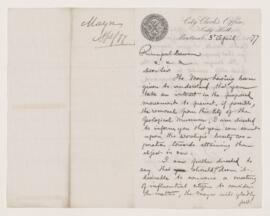 Mayor
Apl/77
City Clerk's Office,
City Hall,
Montreal, 3 April 1877
Principal Dawson
Dear Sir
The Mayor having been
given to understand that you
take an interest in the proposed
movement to prevent, if possible,
the removal from this City of the
Geological Museum, I am directed
to inform you that you can count
upon His Worship's hearty coo-
peration towards attaining that
object in view.
I am further directed to
say that should you deem it
desirable to convene a meeting
of influential citizens to consider
the matter, the Mayor will gladly